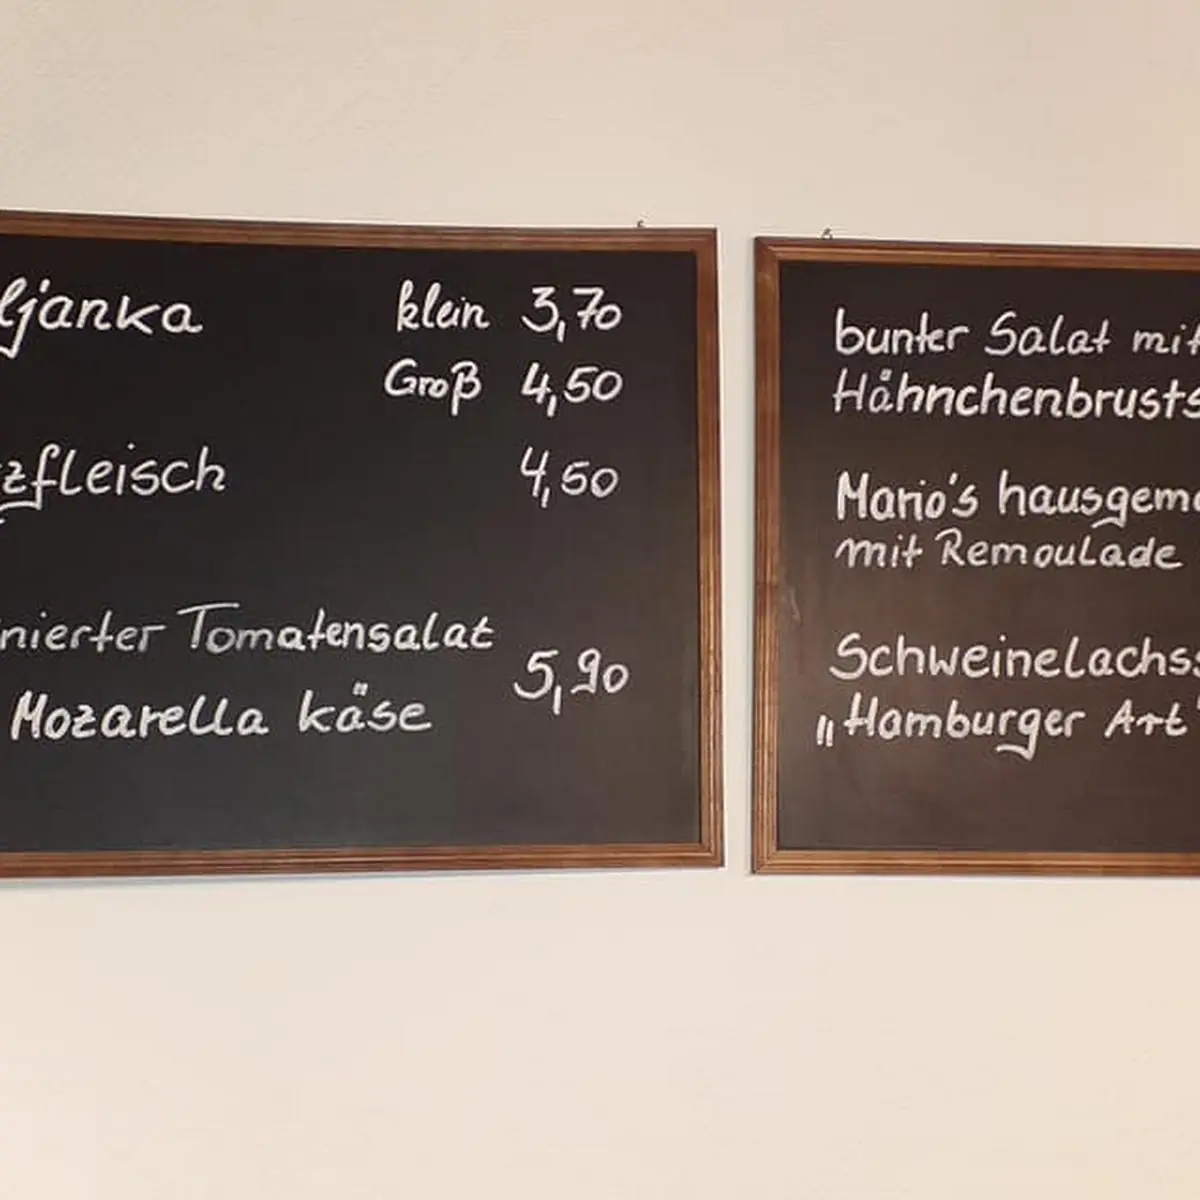 ljanka klein 3,70
Groß 4,50
zfleisch 4,50
nierter Tomatensalat
5,90
Mozarella käse
bunter Salat mit
Hähnchenbrusts
Mario's hausgema
mit Remoulade
Schweinelachss
„Hamburger Art"